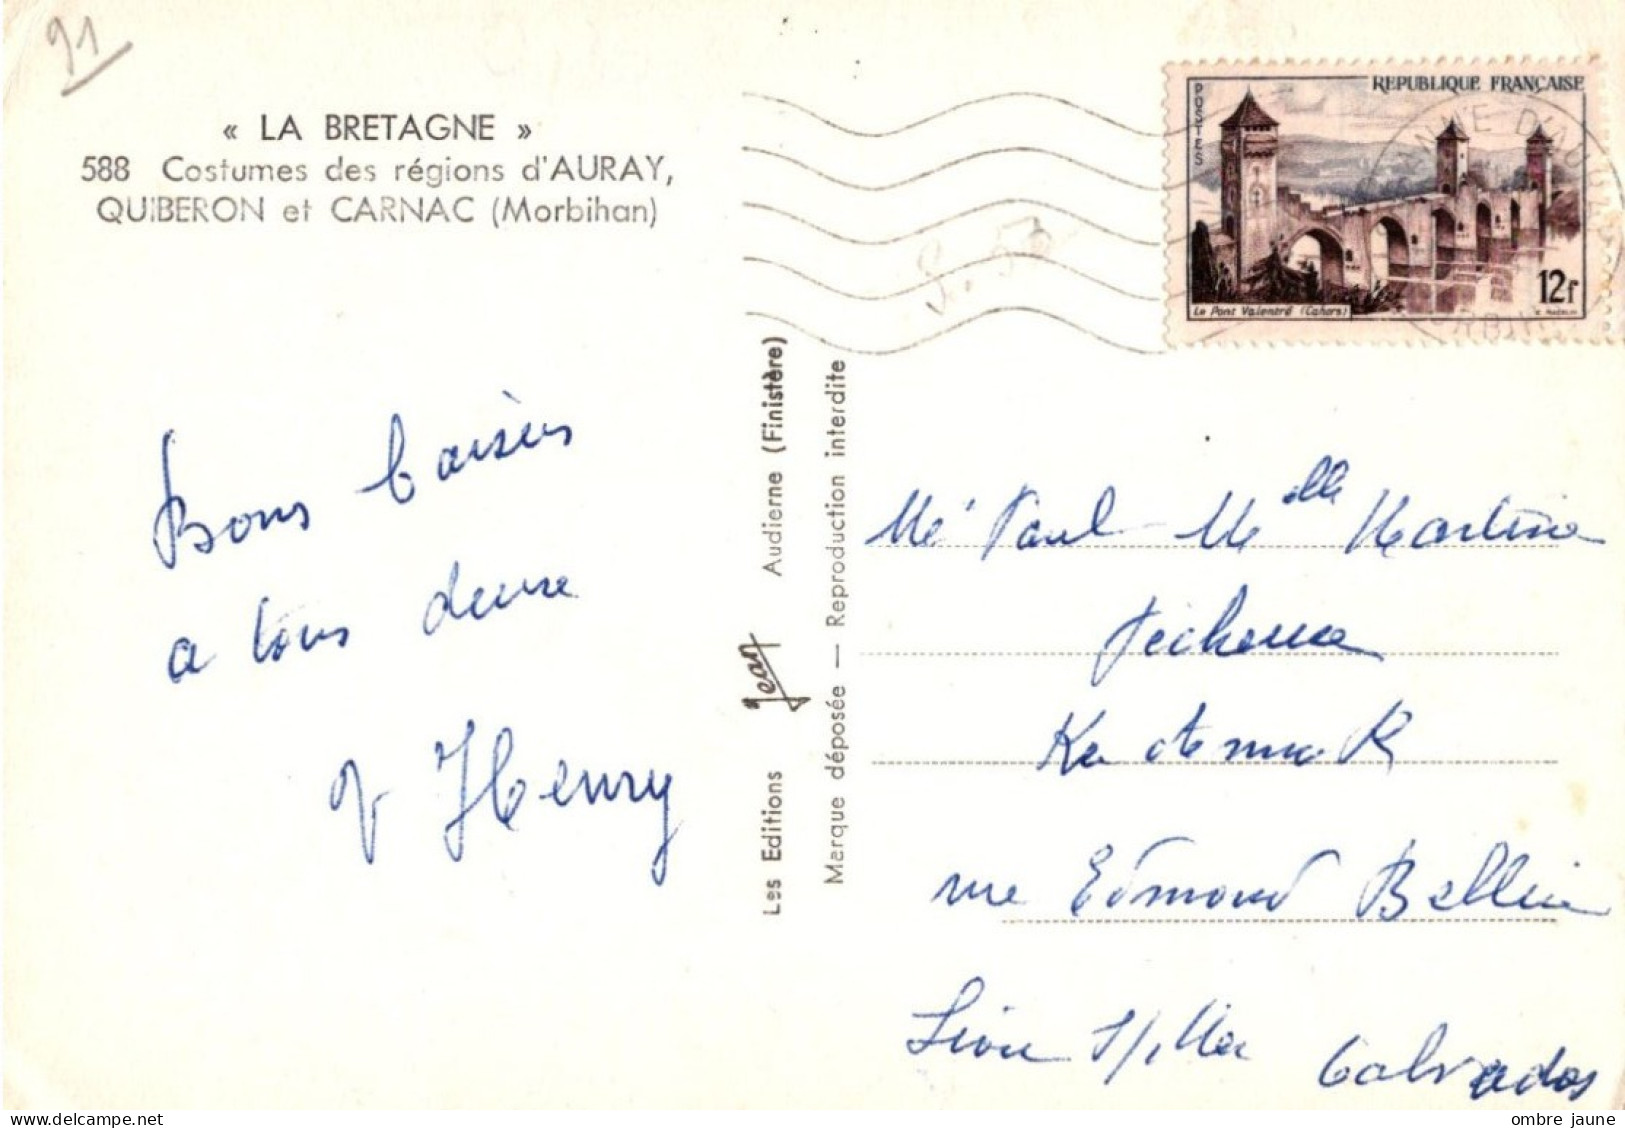 91
« LA BRETAGNE »
588 Costumes des régions d'AURAY,
QUIBERON et CARNAC (Morbihan)
REPUBLIQUE FRANÇAISE
POSTES
12f
Le Pont Valentré (Cahors)
ANNE D'AU
Bons baisers
a tous deux
Henry
Les Editions Jean Audierne (Finistère)
Marque déposée — Reproduction interdite
Paul Melle Martine
rue Edmond Bellin
Lion s/Mer Calvados
ombre jaune